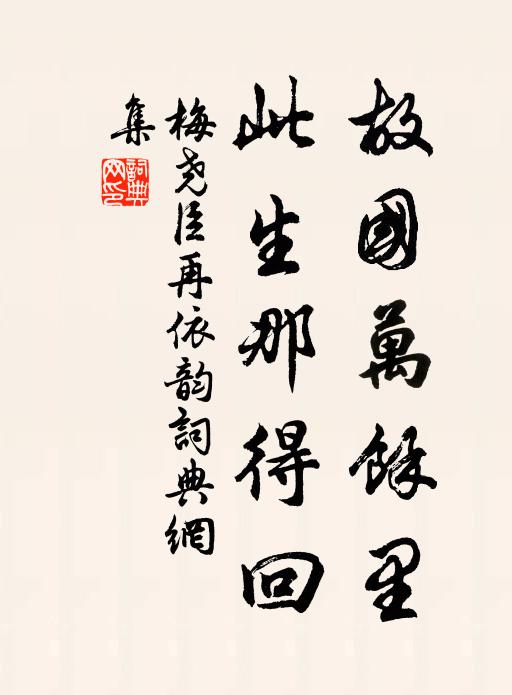 故國萬餘里
此生那得回
梅堯臣再依韵詞典網
集
詞典网印